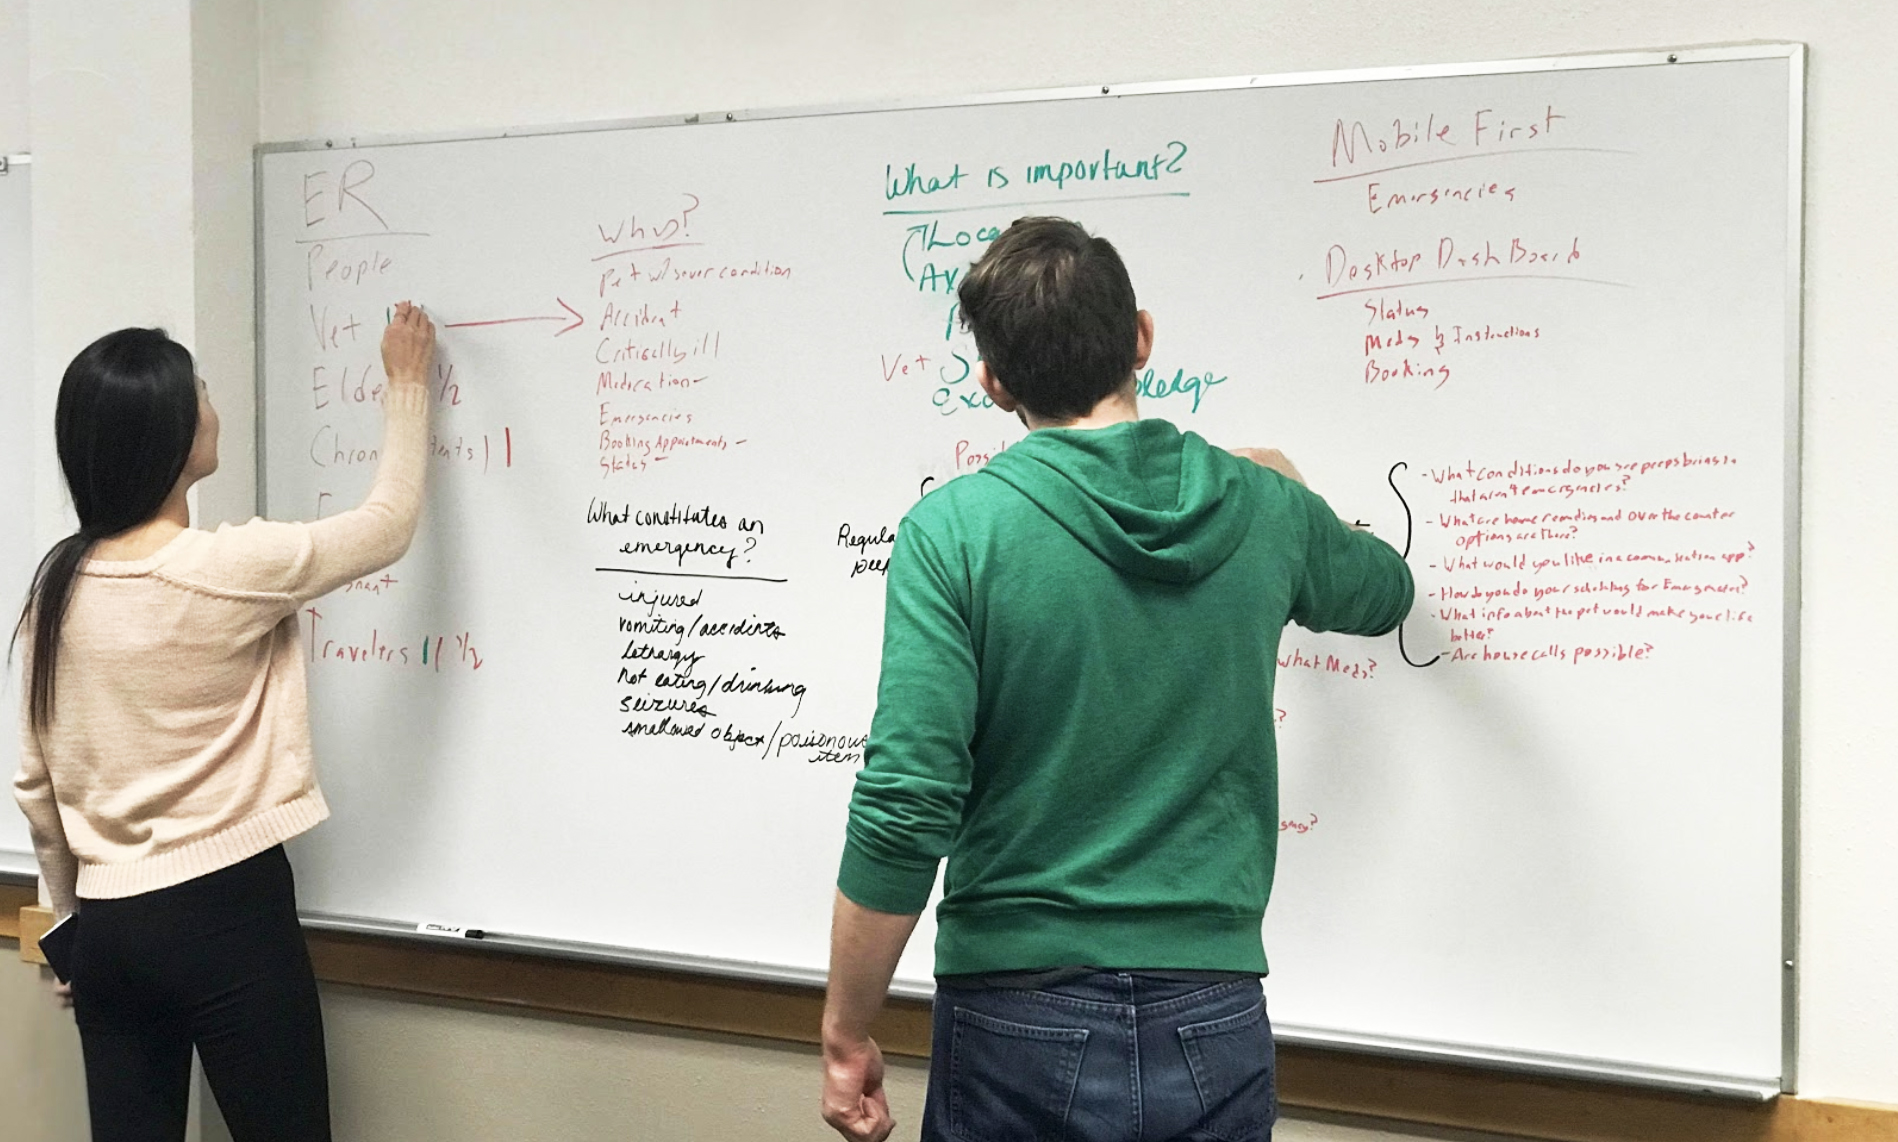 ER
People
Vet
1/2
Travelers 1/2
Whos?
Pet w/ sever condition
Accident
Critically ill
Medication -
Emergencies
Booking Appointments -
Status -
What constitutes an
emergency?
injured
vomiting/accidints
Lethargy
not eating/drinking
seizures
swallowed object/poisonous
item
What is important?
Vet
Mobile First
Emergencies
Desktop DashBoard
Status
Meds & Instructions
Booking
- What conditions do you see peeps bring in
that aren't emergencies?
- What are home remedies and over the counter
options are there?
- What would you like in a communication app?
- How do you do your scheduling for Emergencies?
- What info about the pet would make your life
better?
- Are house calls possible?
what Meds?